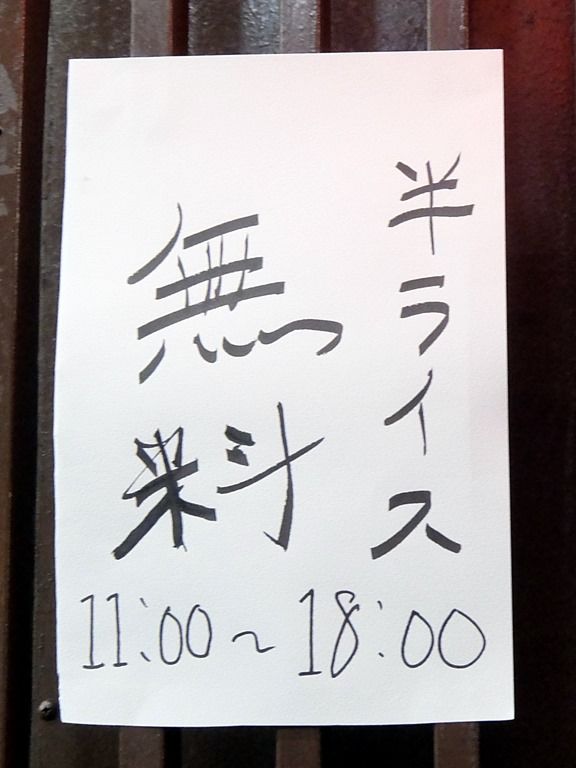 半ライス
無料
11:00～18:00